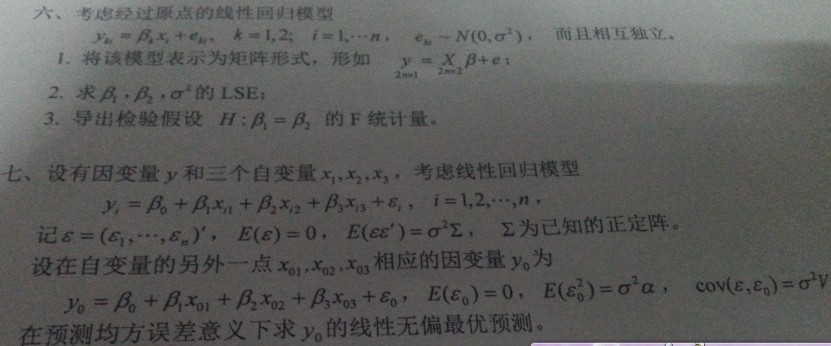 六、考虑经过原点的线性回归模型
y_{ki} = β_k x_i + e_{ki}、 k = 1,2; i = 1,⋯n, e_{ki} ~ N(0,σ²), 而且相互独立。
1. 将该模型表示为矩阵形式，形如 y_{2n×1} = X_{2n×2} β + e;
2. 求 β₁、β₂、σ² 的 LSE;
3. 导出检验假设 H : β₁ = β₂ 的 F 统计量。
七、设有因变量 y 和三个自变量 x₁, x₂, x₃，考虑线性回归模型
y_i = β₀ + β₁x_{i1} + β₂x_{i2} + β₃x_{i3} + ε_i, i = 1,2,⋯,n,
记 ε = (ε₁,⋯,ε_n)′, E(ε) = 0, E(εε′) = σ²Σ, Σ 为已知的正定阵。
设在自变量的另外一点 x₀₁, x₀₂, x₀₃ 相应的因变量 y₀ 为
y₀ = β₀ + β₁x₀₁ + β₂x₀₂ + β₃x₀₃ + ε₀, E(ε₀) = 0, E(ε₀²) = σ²α, cov(ε,ε₀) = σ²V
在预测均方误差意义下求 y₀ 的线性无偏最优预测。